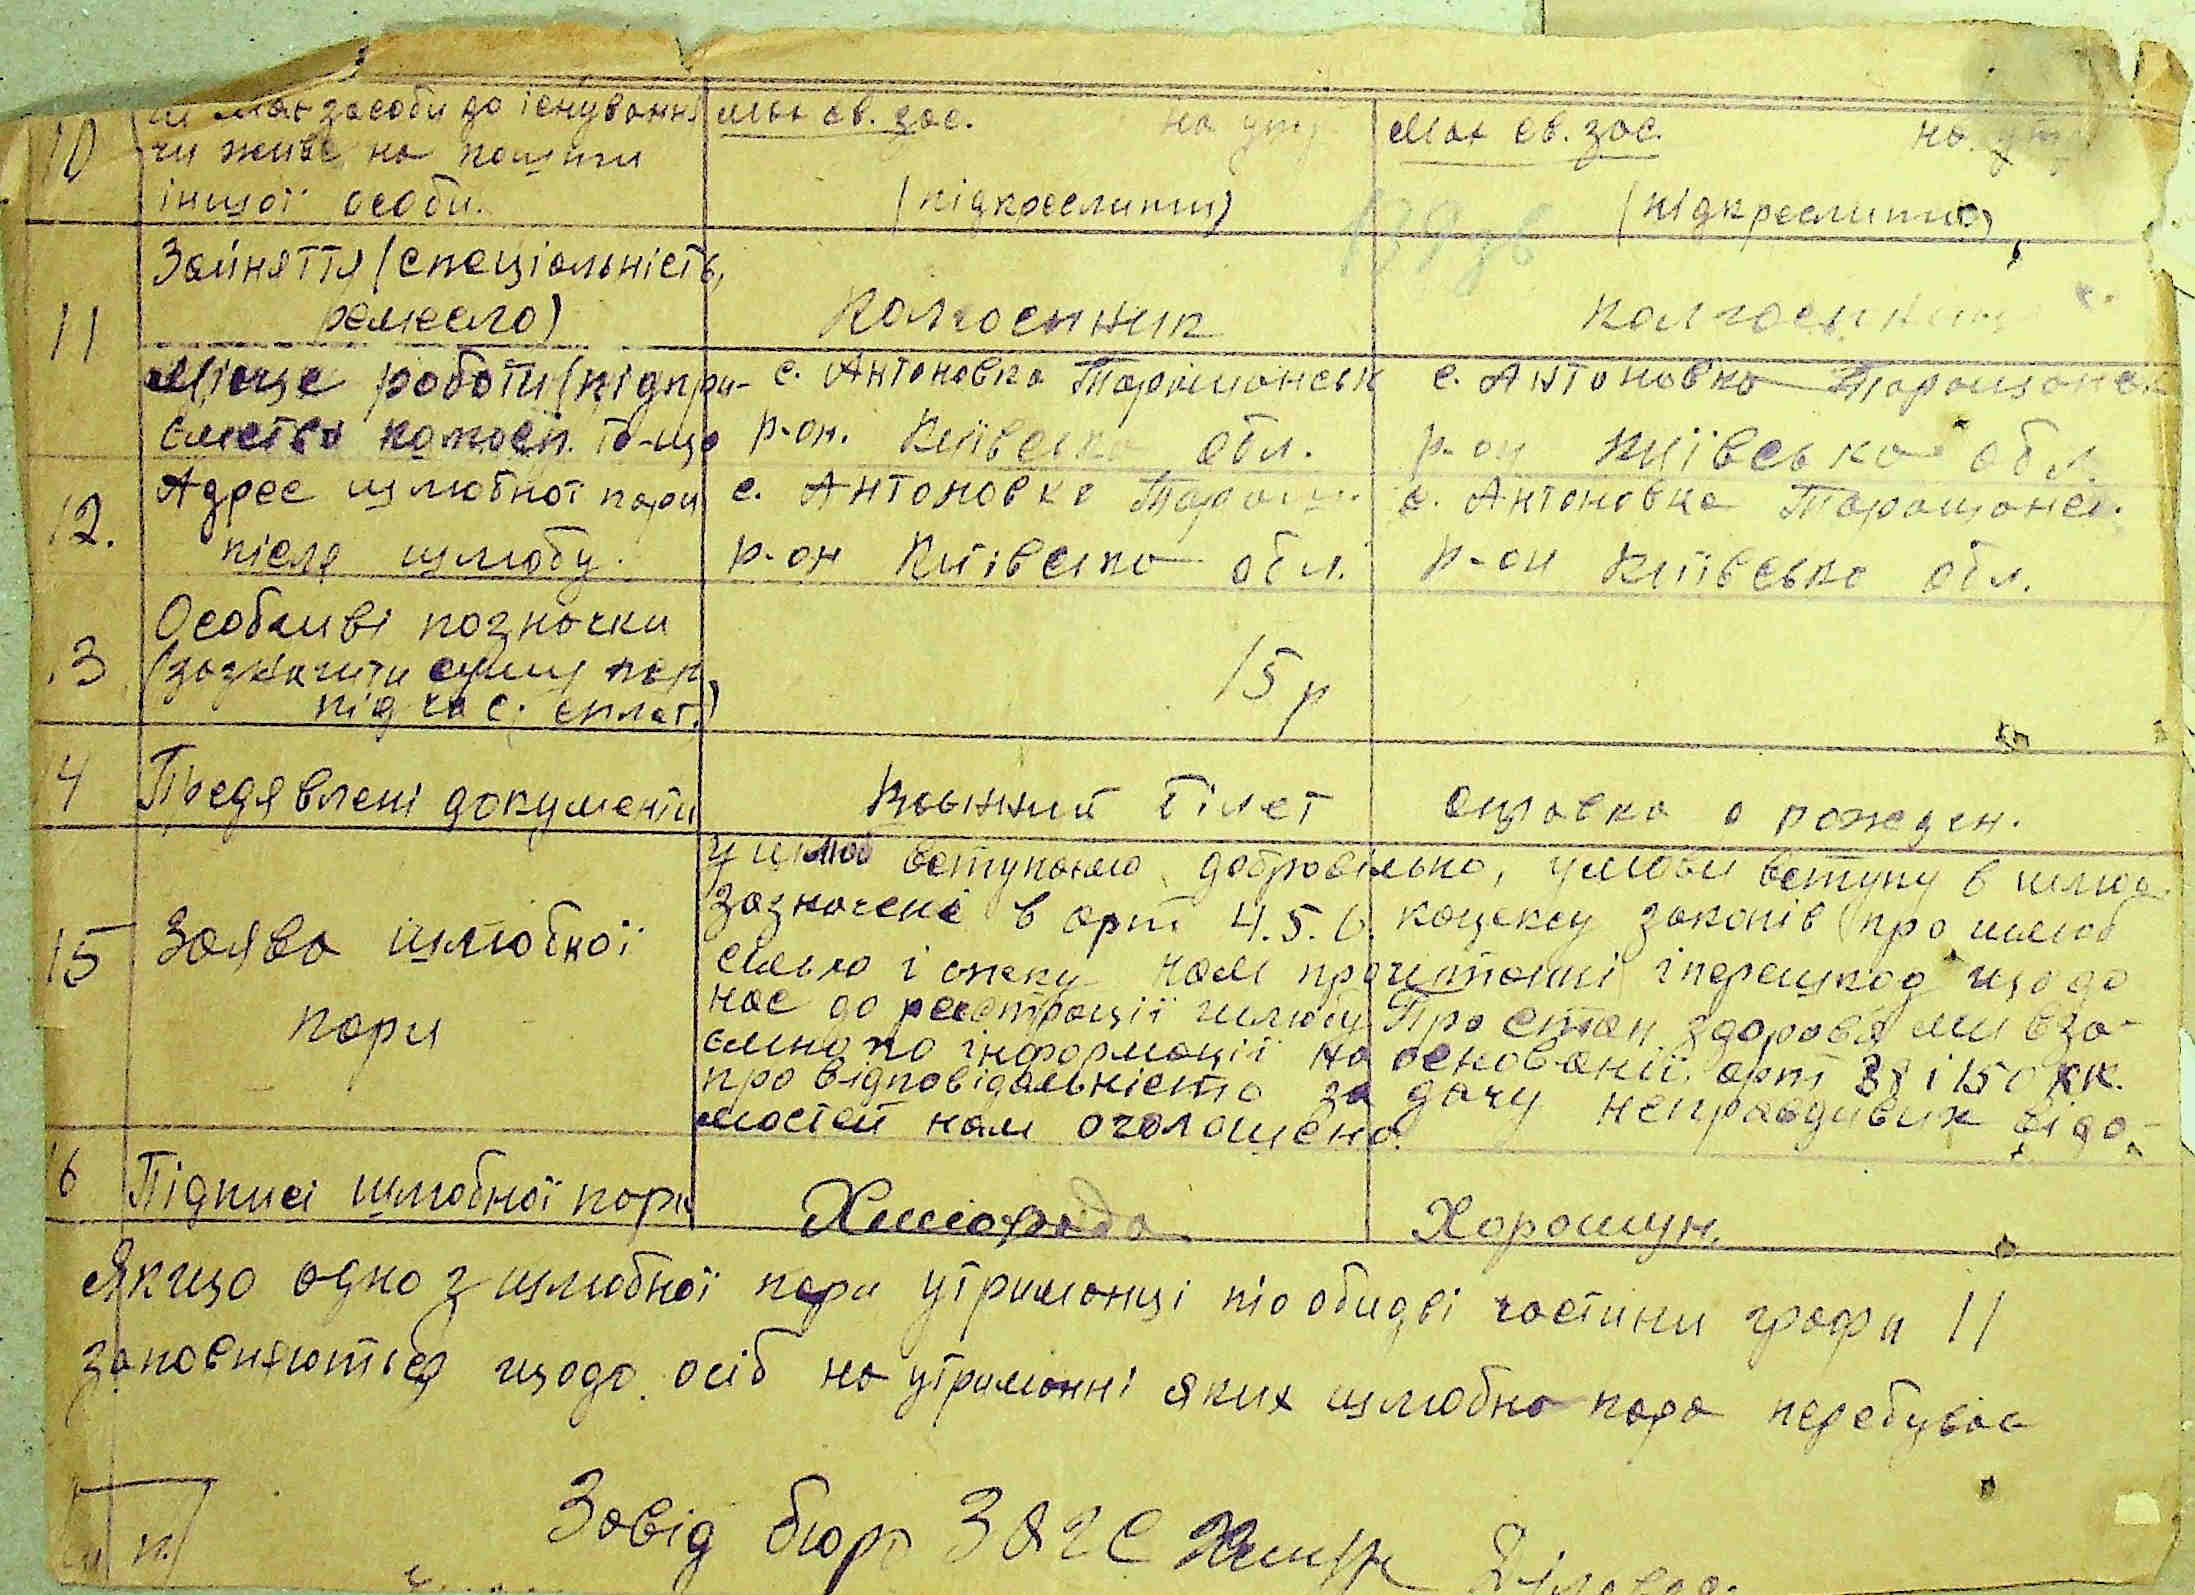 10 має засоби до існування має св. зас. на утр має св. зас. на утр
чи живе на кошти
іншої особи. (підкреслити) (підкреслити)
Зайняття (спеціальність,
11 ремесло) Колгоспник колгоспниця
Місце роботи (підпри- с. Антоновка Таращанськ с. Антоновка Таращанськ
ємство колгосп. то-що р-он. Київська обл. р-он Київська обл.
12. Адрес шлюбної пари с. Антоновка Таращ. с. Антоновка Таращанс.
після шлюбу. р-он Київська обл. р-он Київська обл.
Особливі позначки
.3 (зазначити суму 15 р
під час. сплат.)
14 Предявлені документи Воєнний білет справка о рожден.
У шлюб вступаємо добровільно, умови вступу в шлюб
зазначені в арт 4.5.6. кодексу законів про шлюб
15 Заява шлюбної сімью і опеку нам прочитані і перешкод щодо
пари нас до реєстрації шлюбу Про стан здоровя ми вза-
ємно по інформації на основанії арт 38 і 150 КК.
про відповідальність за дачу неправдивих відо-
мостей нам оголошено.
16 Підписі шлюбної пари Хорошун.
Якщо одно з шлюбної пари утриманці то обидві частини графи 11
заповняються щодо осіб на утриманні яких шлюбна пара перебуває
Завід бюро ЗАГС